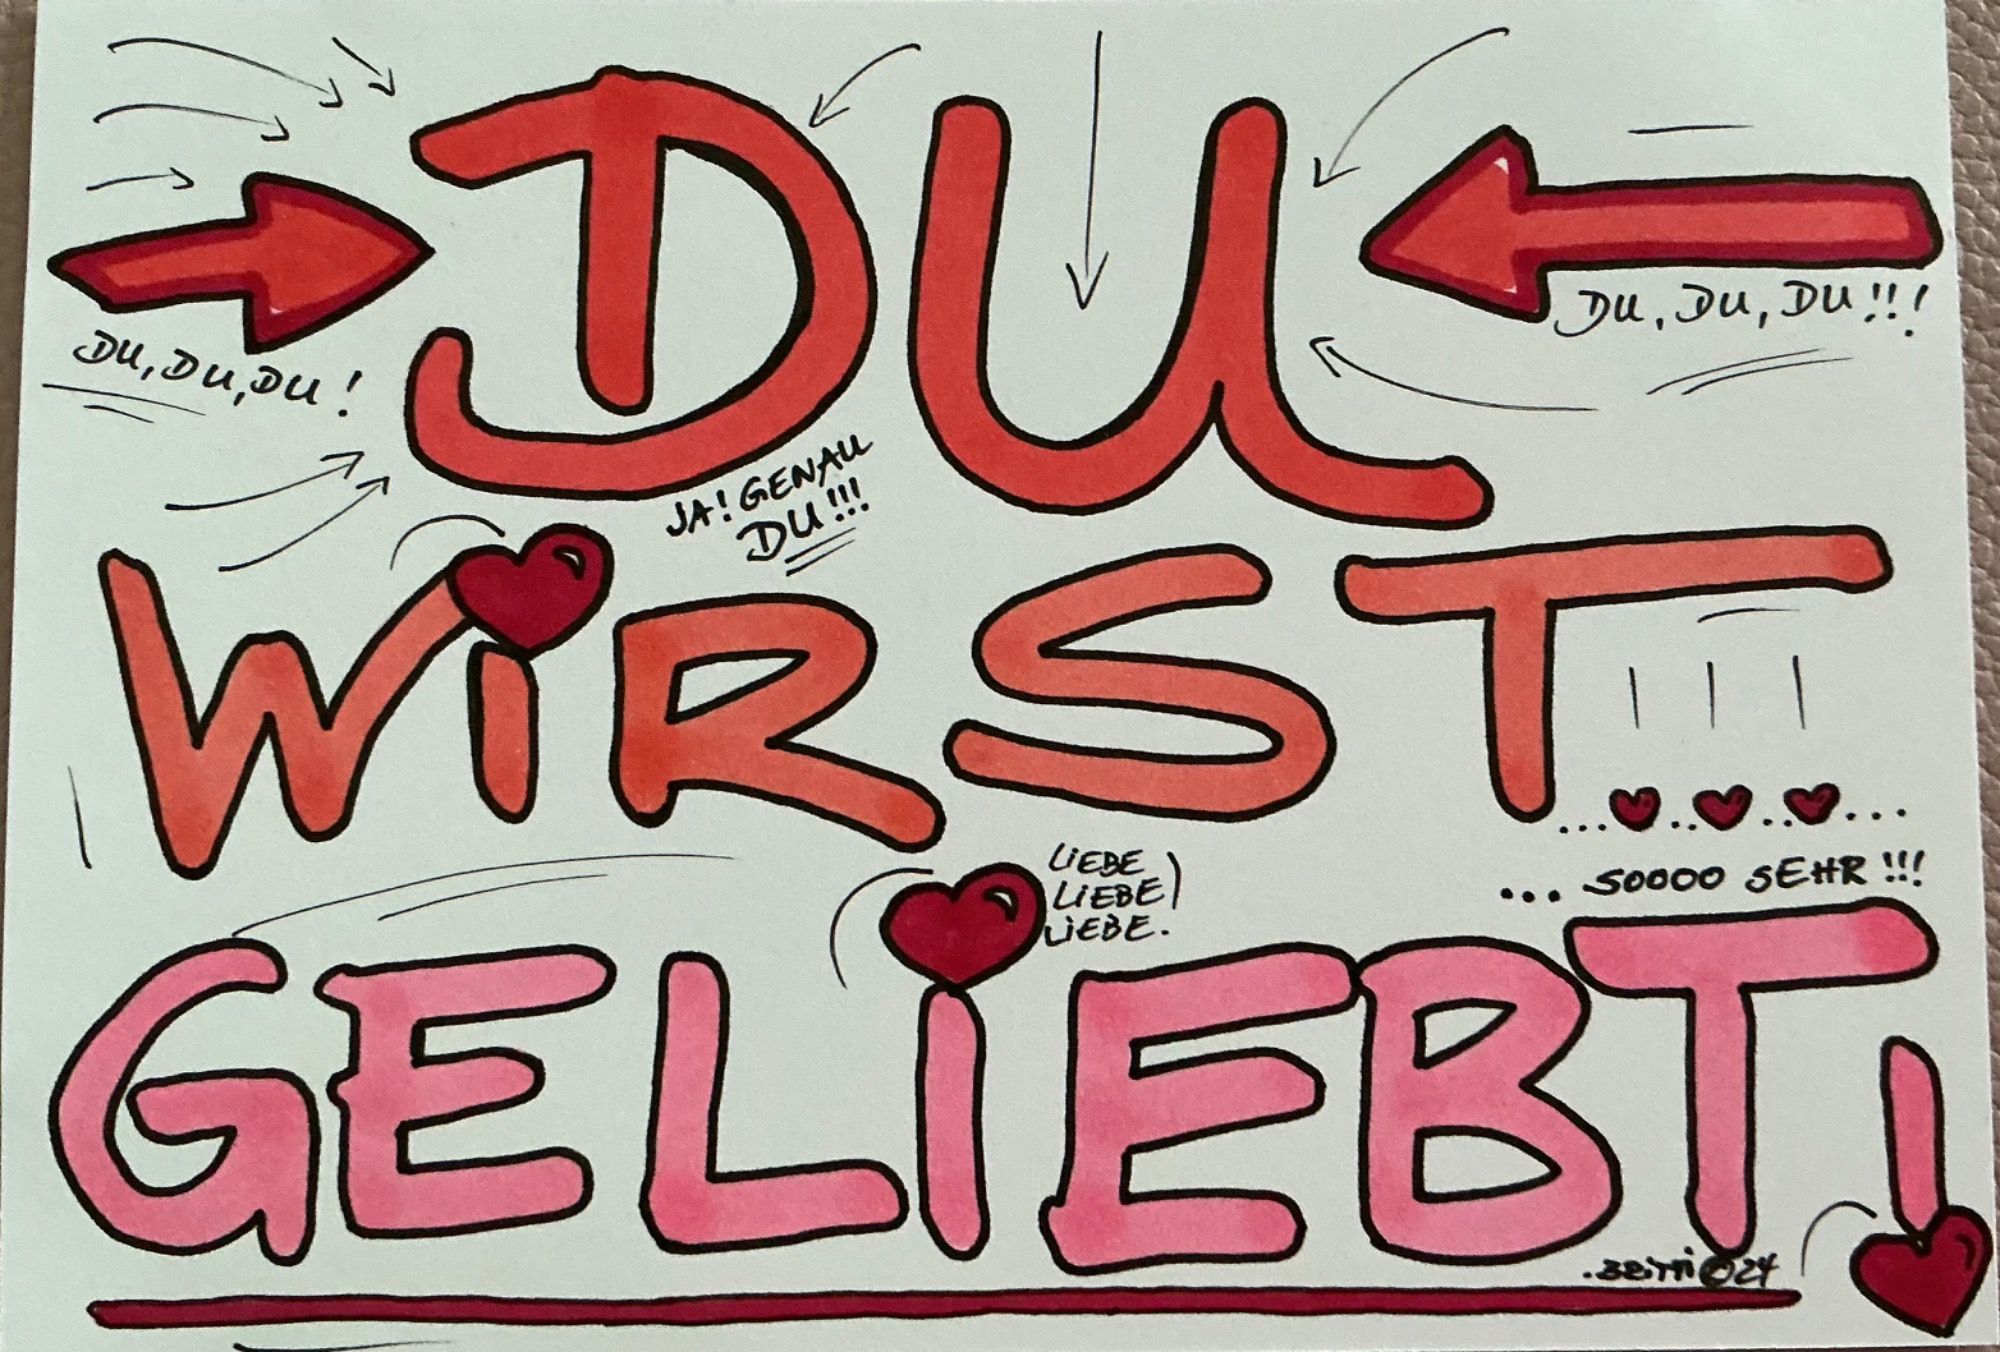 DU
DU, DU, DU!
DU, DU, DU!!!
JA! GENAU
DU!!!
WiRST
... SOOOO SEHR!!!
LiEBE
LiEBE
LiEBE.
GELiEBT!
BRiTTi © 24